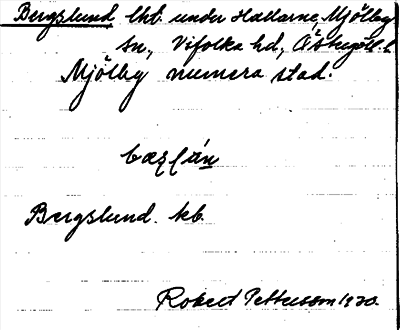 Bergslund lht. under Hallarne, Mjölby
sn., Vifolka hd, Östergötl. l.
Mjölby numera stad.
Bergslund. kb.
Robert Pettersson 1920.